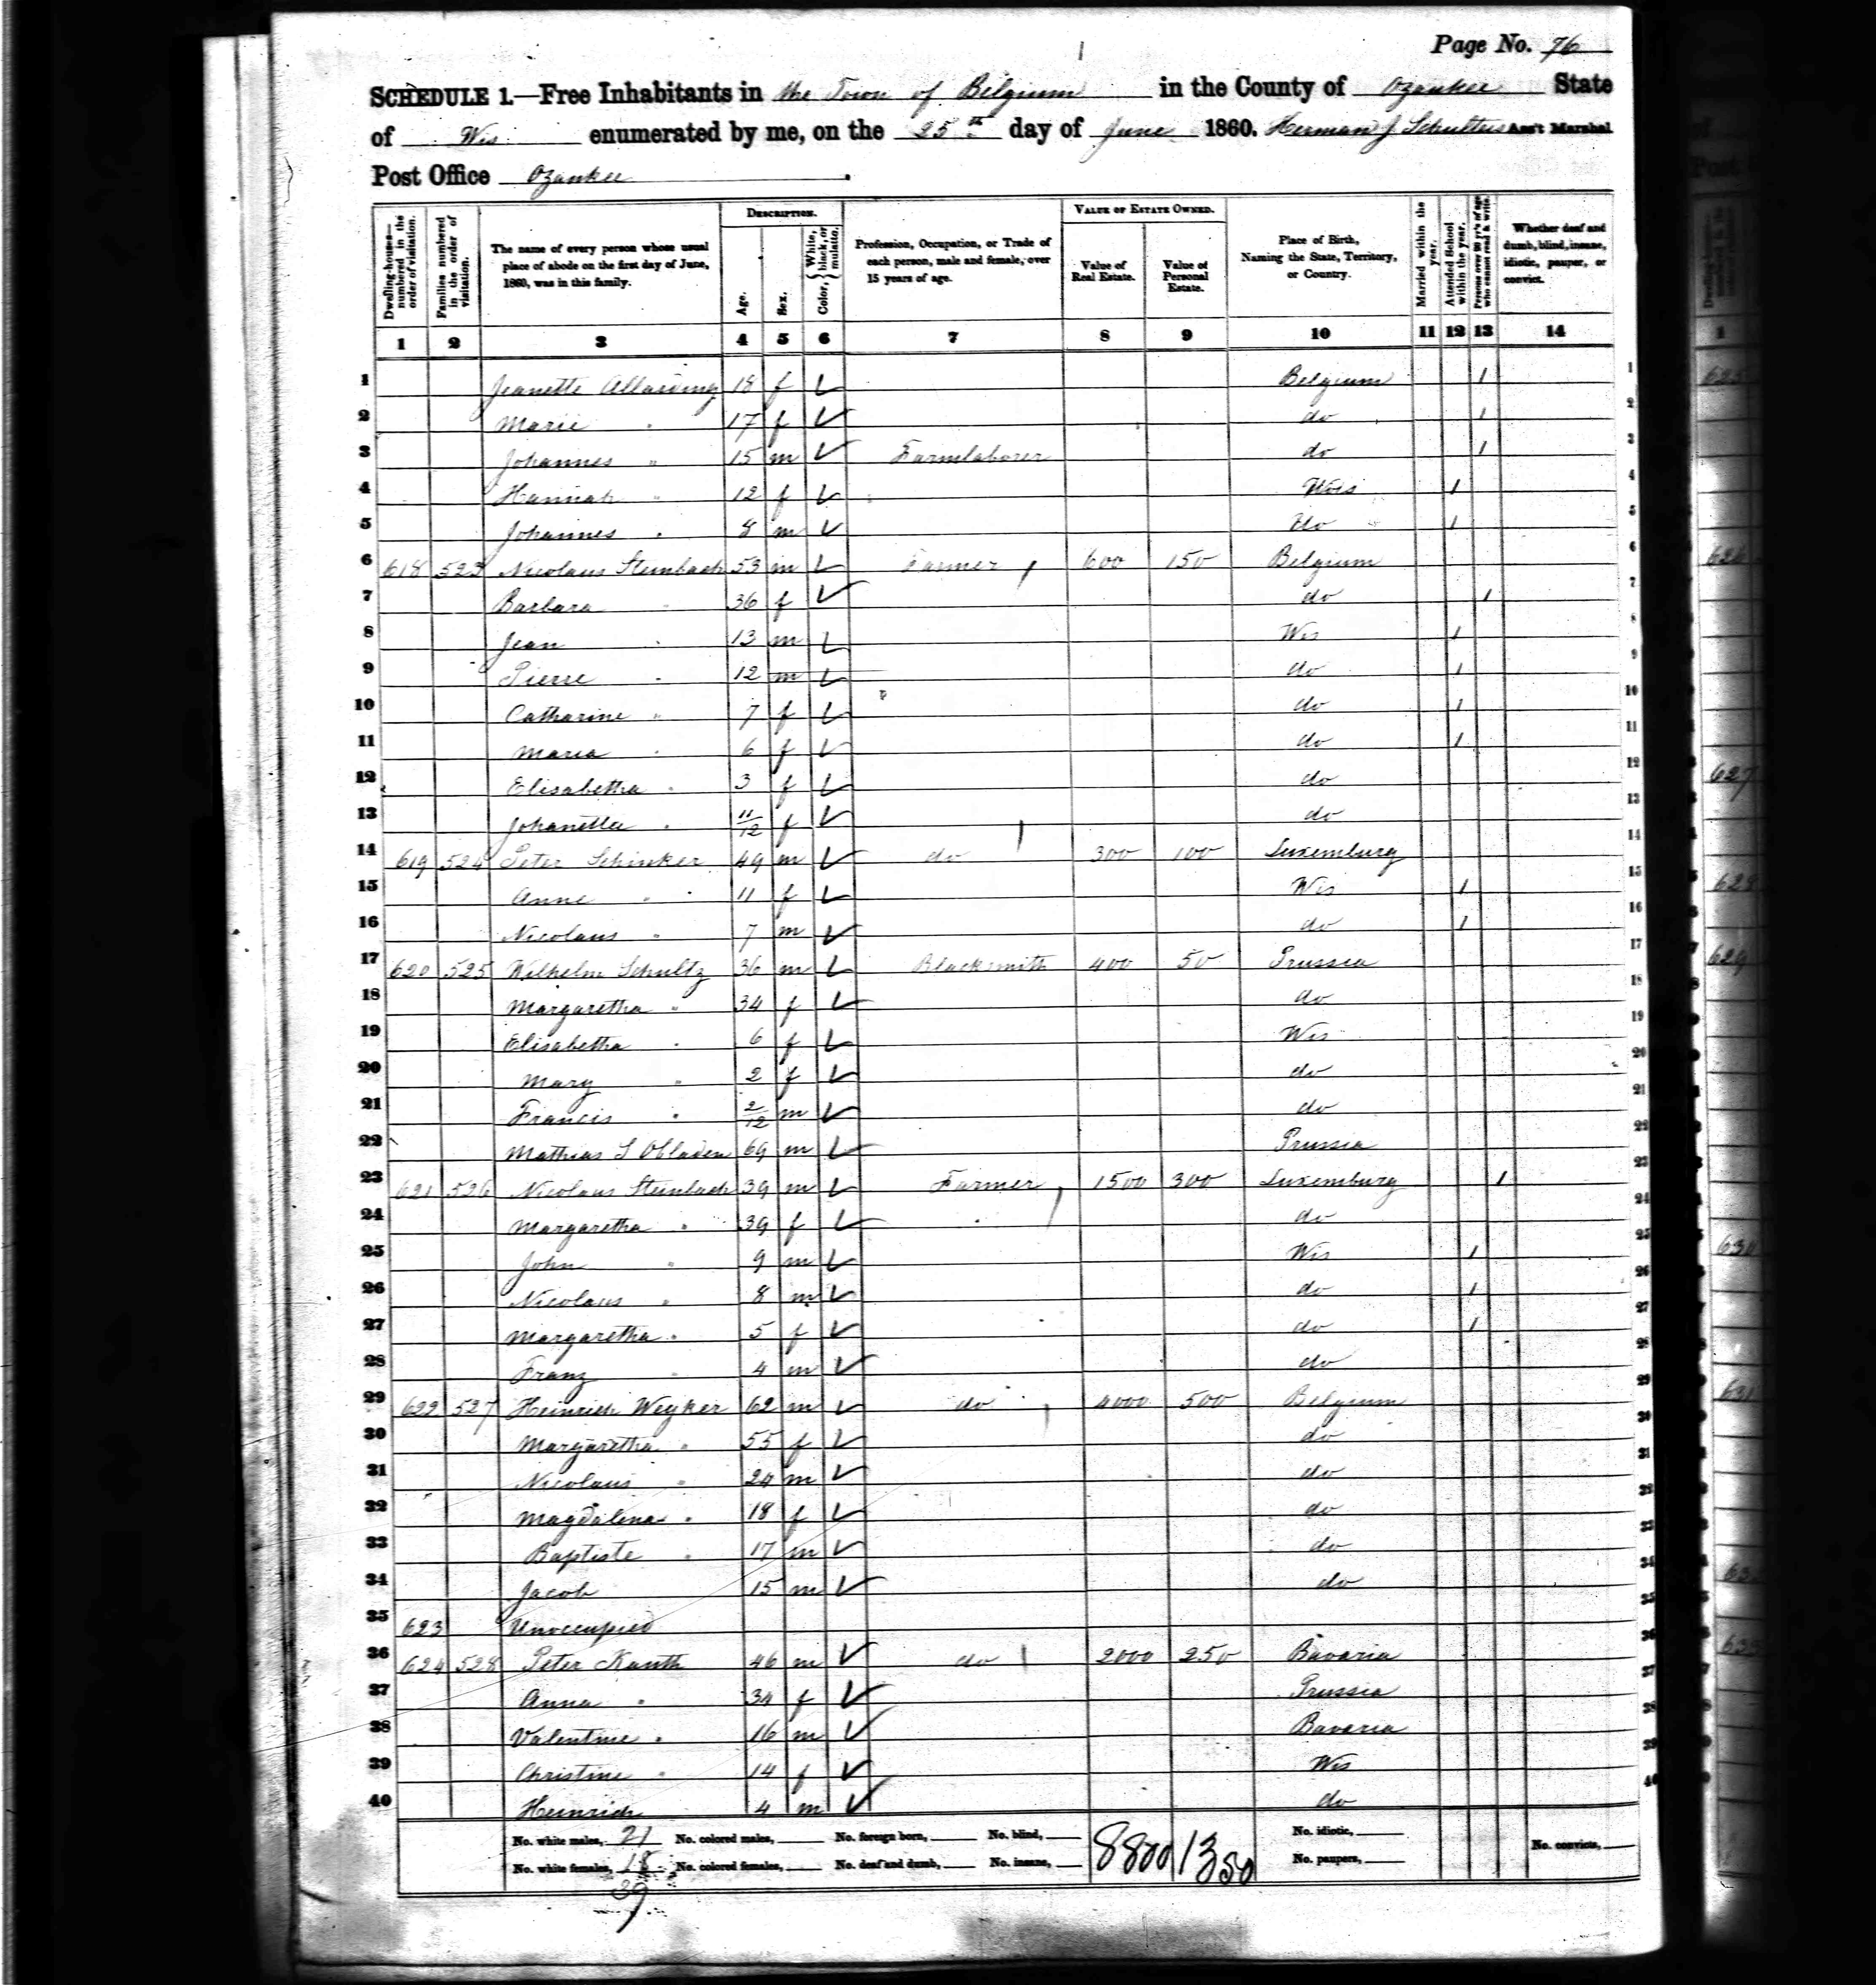 Page No. 76
SCHEDULE 1.—Free Inhabitants in the Town of Belgium in the County of Ozaukee State
of Wis. enumerated by me, on the 25th day of June 1860. Herman J Schulteis Ass't Marshal
Post Office Ozaukee
Dwelling-houses—numbered in the order of visitation.
Families numbered in the order of visitation.
The name of every person whose usual place of abode on the first day of June, 1860, was in this family.
DESCRIPTION.
Age.
Sex.
Color, { White, black, or mulatto.
Profession, Occupation, or Trade of each person, male and female, over 15 years of age.
VALUE OF ESTATE OWNED.
Value of Real Estate.
Value of Personal Estate.
Place of Birth, Naming the State, Territory, or Country.
Married within the year.
Attended School within the year.
Persons over 20 y'rs of age who cannot read & write.
Whether deaf and dumb, blind, insane, idiotic, pauper, or convict.
1 2 3 4 5 6 7 8 9 10 11 12 13 14
1 Jeanette Allarding 18 f Belgium 1 1
2 Marie " 17 f do 1 2
3 Johannes " 15 m Farmlaborer do 1 3
4 Hannah " 12 f Wis 1 4
5 Johannes " 8 m do 1 5
6 618 523 Nicolaus Steinbach 53 m Farmer 600 150 Belgium 6
7 Barbara " 36 f do 1 7
8 Jean " 13 m Wis 1 8
9 Pierre " 12 m do 1 9
10 Catharine " 7 f do 1 10
11 Maria " 6 f do 1 11
12 Elisabetha " 3 f do 12
13 Johanetta " 11/12 f do 13
14 619 524 Peter Schinker 49 m do 300 100 Luxemburg 14
15 Anne " 11 f Wis 1 15
16 Nicolaus " 7 m do 1 16
17 620 525 Wilhelm Schultz 36 m Blacksmith 400 50 Prussia 17
18 Margaretha " 34 f do 18
19 Elisabetha " 6 f Wis 19
20 Mary " 2 f do 20
21 Francis " 2/12 m do 21
22 Mathias S Obladen 69 m Prussia 22
23 621 526 Nicolaus Steinbach 39 m Farmer 1500 300 Luxemburg 1 23
24 Margaretha " 39 f do 24
25 John " 9 m Wis 1 25
26 Nicolaus " 8 m do 1 26
27 Margaretha " 5 f do 1 27
28 Franz " 4 m do 28
29 622 527 Heinrich Weyker 62 m do 4000 500 Belgium 29
30 Margaretha " 55 f do 30
31 Nicolaus " 24 m do 31
32 Magdalena " 18 f do 32
33 Baptiste " 17 m do 33
34 Jacob 15 m do 34
35 623 Unoccupied 35
36 624 528 Peter Kauth 46 m do 2000 250 Bavaria 36
37 Anna " 34 f Prussia 37
38 Valentine " 16 m Bavaria 38
39 Christine " 14 f Wis 39
40 Heinrich 4 m do 40
No. white males, 21 No. colored males, No. foreign born, No. blind, 8800 1350 No. idiotic,
No. white females, 18 No. colored females, No. deaf and dumb, No. insane, No. paupers, No. convicts,
39
626
627
628
629
630
631